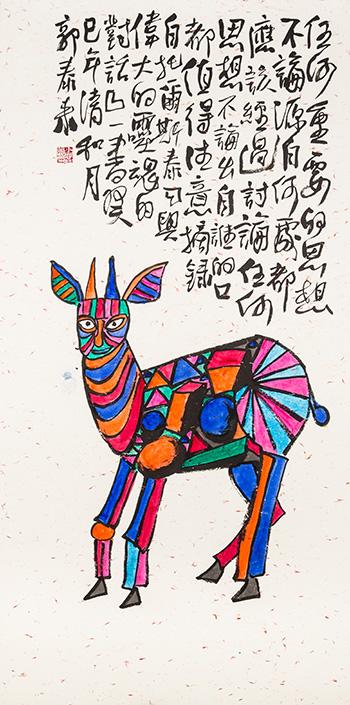 任何重要的思想
不論源自何處都
應該經過討論任何
思想不論出自誰的口
都值得注意摘錄
自托爾斯泰與
偉大的靈魂的
對話
巳年清和月
郭泰來